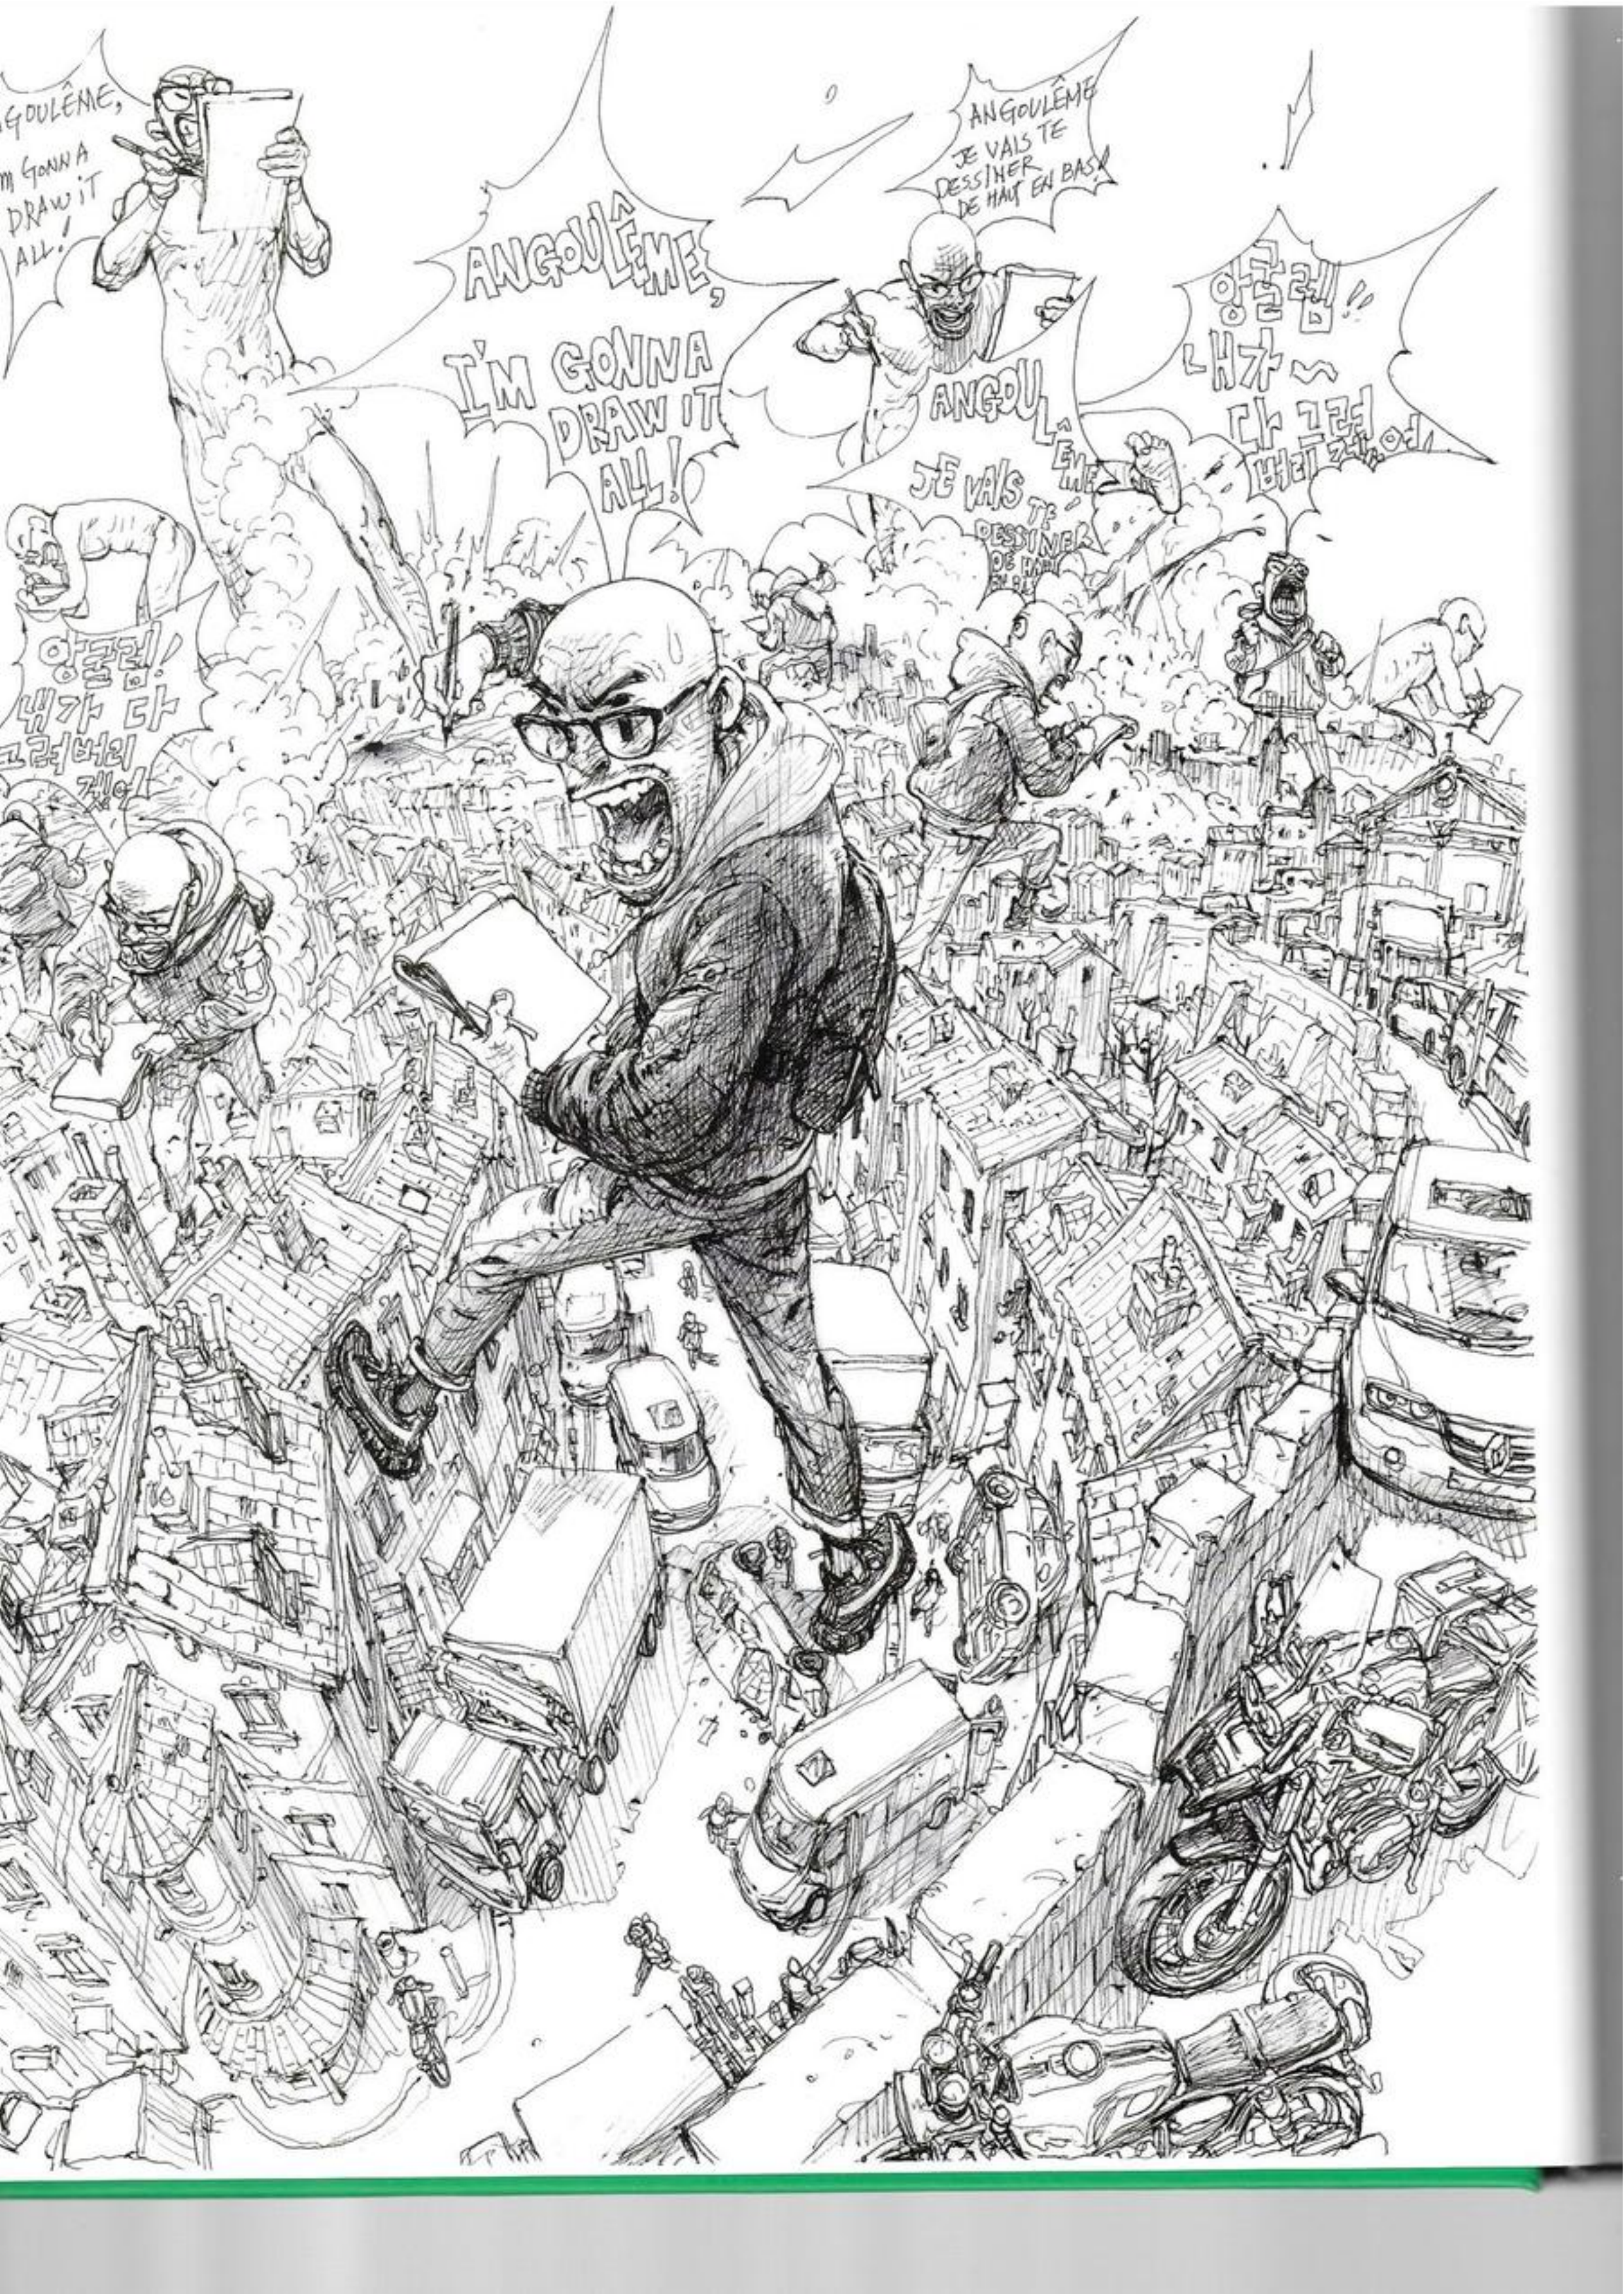 GOULÊME,
M GONNA
DRAW IT
ALL!
ANGOULÊME,
I'M GONNA
DRAW IT
ALL!
ANGOULÊME
JE VAIS TE
DESSINER
DE HAUT EN BAS!
ANGOULÊME
JE VAIS TE
DESSINER
DE HAUT
EN BAS
앙굴렘!!
내가~
다 그려
버리겠어
앙굴렘!
내가 다
그려버리
겠어